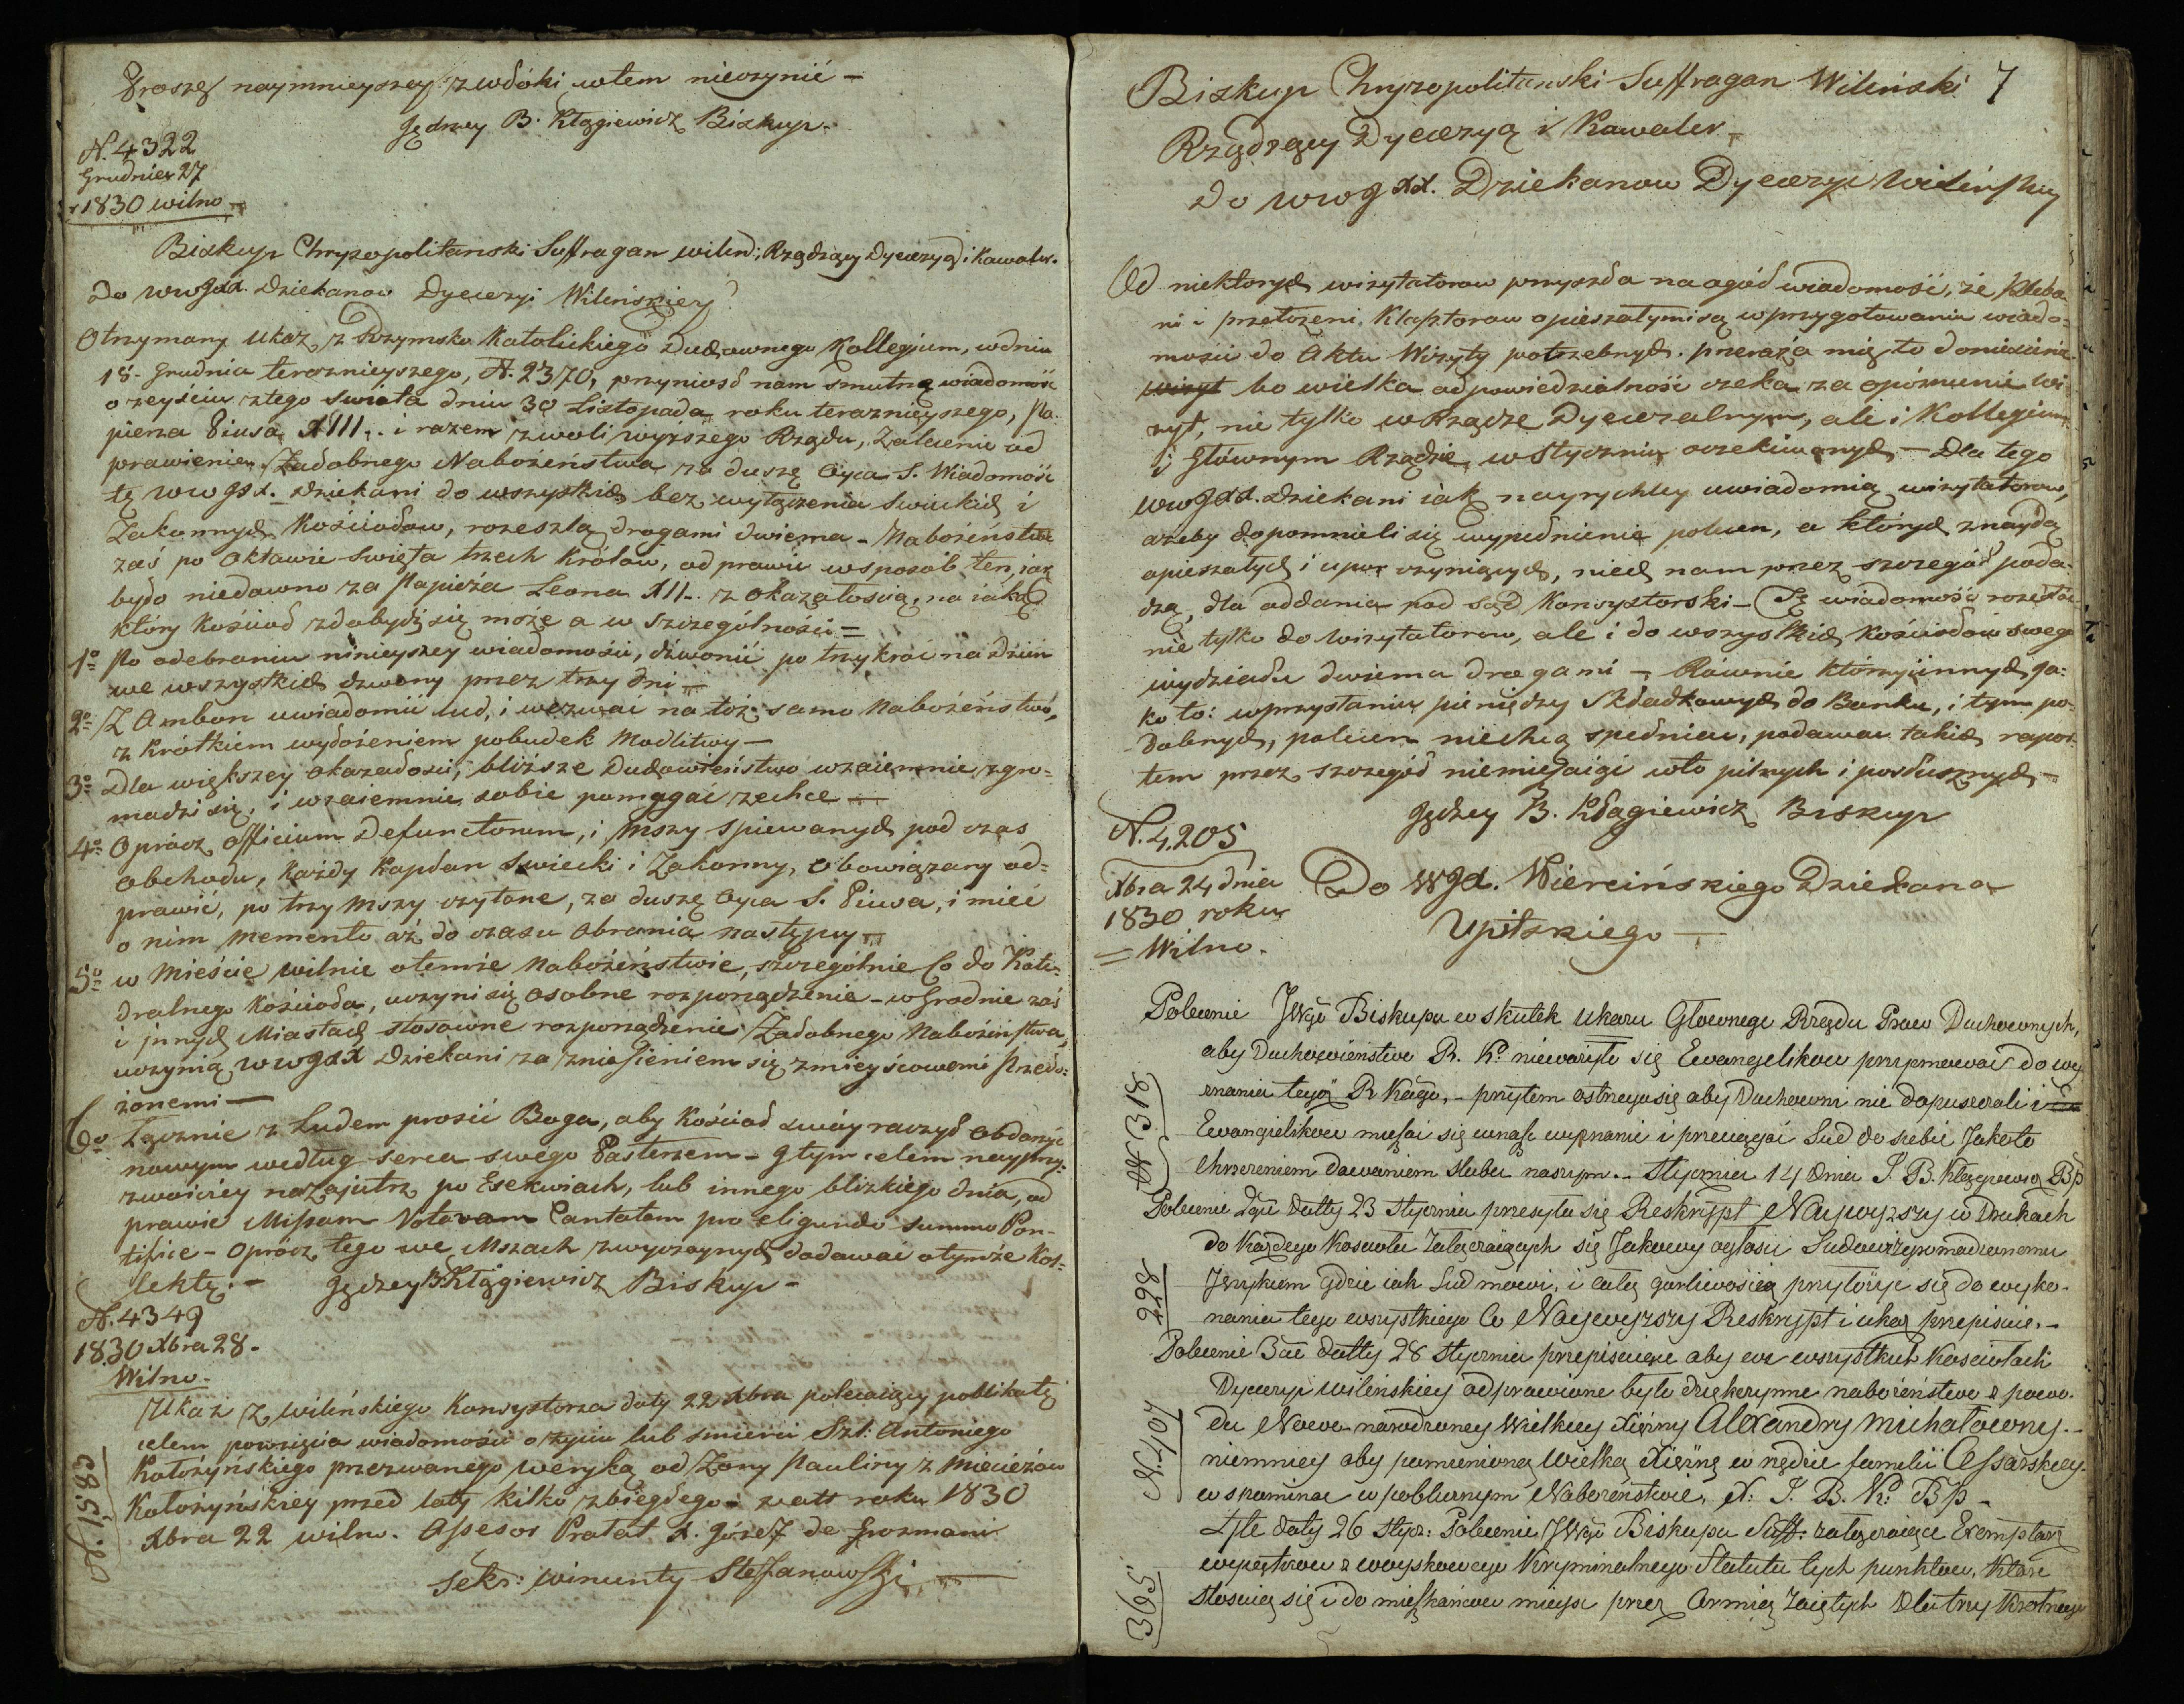 Proszę naymnieyszey zwłóki wtem nieczynić —
Jędrzey B. Kłągiewicz Biskup.
N. 4322
Grudnia 27
1830 wilno
Biskup Chryzopolitański Suffragan wileń: Rządzący Dyecezyą i Kawaler.
Do WWJXX. Dziekanow Dyecezyi Wileńskiey
Otrzymany Ukaz z Rzymsko Katolickiego Duchownego Kollegium, wdniu
18. Grudnia teraznieyszego, N. 2370, przyniosł nam smutną wiadomość
o zeyściu ztego świata dniu 30 Listopada roku teraznieyszego, Pa-
pieża Piusa XIII. i razem zwoli wyższego Rządu, Zalecenie od
prawienia Żałobnego Nabożeństwa za duszę Oyca S. Wiadomość
tę WWJXX. Dziekani do wszystkich bez wyłączenia Swieckich i
Zakonnych Kościołow, rozeszlą drogami dwiema — Nabożeństwo
zaś po Oktawie Swięta trzech Królów, odprawić wsposób ten, jak
było niedawno za Papieża Leona XII. z okazałoscią, na iaką
który Kościoł zdobydź się może a w szczególności =
1o Po odebraniu ninieyszey wiadomości, dźwonić po trzykroć na dzień
we wszystkie dzwony przez trzy dni —
2o Z Ambon uwiadomić lud, i wezwać na tóż samo Nabożeństwo,
z krótkiem wyłożeniem pobudek Modlitwy —
3o Dla większey okazałosci, bliższe Duchowieństwo wzaiemnie zgro-
madzi się, i wzaiemnie sobie pomagać zechce —
4o Oprócz Officium Defunctorum, i Mszy Spiewanych pod czas
obchodu, każdy Kapłan Swiecki i Zakonny, obowiązany od-
prawić, po trzy Mszy czytane, za duszę Oyca S. Piusa, i mieć
o nim Memento aż do czasu obrania następcy —
5o w Mieście wilnie otemże Nabożeństwie, szczególnie Co do Kate-
dralnego Kościoła, uczyni się osobne rozporządzenie — w Grodnie zaś
i jnnych Miastach stosowne rozporządzenie Żałobnego Nabożeństwa,
uczynią WWJXX Dziekani za zniesieniem się zmieyscowemi Przeło-
żonemi —
6o Łącznie z Ludem prosić Boga, aby Kościoł swóy raczył obdarzyć
nowym według serca swego Pasterzem — Jtym celem nayprzy-
zwoiciey nazajutrz po Exekwiach, lub innego blizkiego dnia, od
prawić Missam Votovam Cantatam pro eligendo Summo Pon-
tifice — Oprócz tego we Mszach zwyczaynych dodawać otymże Kol-
lektę. — Jędrzey B Kłągiewicz Biskup —
N. 4349
1830 Xbra 28.
Wilno.
Ukaz z wileńskiego Konsystorza daty 22 Xbra polecaiący publikatę
celem powzięcia wiadomości o życiu lub smierci Szl. Antoniego
Kotożyńskiego przezwanego Weryką od Żony Pauliny z Miecieżow
Kotożyńskiey przed laty kilko zbiegłego — roku 1830
Xbra 22 wilno. Assesor Prałat X. Józef de Grozmani
Sekr: winunty Steffanowski —
N. 1583
Biskup Chryzopolitanski Suffragan Wileński 7
Rządzący Dyecezyą i Kawaler —
Do WWJXX. Dziekanow Dyecezyi Wileńskiey
Od niektorych wizytatorow przyszła na ogół wiadomość, że Pleba-
ni i przełożeni Klasztorow opieszałymi są wprzygotowaniu wiado-
mości do Aktu Wizyty potrzebnych. przeraża mię to doniesienie
wizyt bo wielka odpowiedzialność czeka za opóznienie Wi
zyt, nie tylko w Rządzie Dyecezalnym, ale i Kollegium
i Głównym Rządzie, w Styczniu oczekiwanych — Dla tego
WWJXX. Dziekani iak nayrychley uwiadomią wizytatorow,
ażeby dopomnieli się wypełnienia poleceń, a których znaydą
opieszałych i upor czyniących, niech nam przez szczegół poda-
dzą, dla oddania pod sąd Konsystorski — Tę wiadomość rozesłać
nie tylko do Wizytatorow, ale i do wszystkich Kościołow swego
wydziału dwiema drogami — Równie którzy innych ja-
ko to: wprzysłaniu pieniędzy składkowych do Banku, i tym po-
dobnych, poleceń niechcą spełniać, podawać takich rapor-
tem przez szczegół niemieszaiąc wto pilnych i posłusznych —
Jędrzey B. Kłągiewicz Biskup
N. 4205
Xbra 24 dnia
1830 roku
= Wilno.
Do WJX. Wiercińskiego Dziekana
Upitskiego —
Polecenie JWgo Biskupa w skutek Ukazu Głownego Rządu Praw Duchownych,
aby Duchowieństwo R. K. nieważyło się Ewangelikow przyymować do wy
znania tegoż R Kago, — przytem ostrzega się aby Duchowni nie dopuszczali i
Ewangielikow mieszać się wnasze wyznanie i przeciągać Lud do siebie Jakoto
Chrzczeniem dawaniem slubu naszym. — Stycznia 14 dnia J. B. Kłągiewicz Bp
N 318
Polecenie Jego datty 23 Stycznia przesyła się Reskrypt Naywyzszy w Drukach
do Każdego Kosciołu załączaiących się Jakowy ogłosić Ludowi zgromadzonemu
Językiem gdzie iak Lud mowi, i całą gorliwością przyłożyć się do wyko-
nania tego wszystkiego Co Naywyższy Reskrypt i ukaz przepisuie. —
228
Polecenie Bae datty 28 Stycznia przepisuiące aby we wszystkich Kosciołach
Dyecezyi wileńskiey odprawione było dziękczynne nabożeństwo z powo-
du Nowo narodzoney Wielkiey Xiężny Alexandry Michałowny. —
niemniey aby pomienioną Wielką Xiężnę w rzędzie familii Cesarskiey
wspominać w publicznym Nabożeństwie, X. J. B. K: Bp —
N. 407
daty 26 Stycz: Polecenie JWgo Biskupa Suff: załączaiące Exemplarz
wyjątkow z woyskowego Kryminalnego Statutu tych punktow, Ktore
Stosuią się i do mieszkańcow mieysc przez Armią zaiętych
365